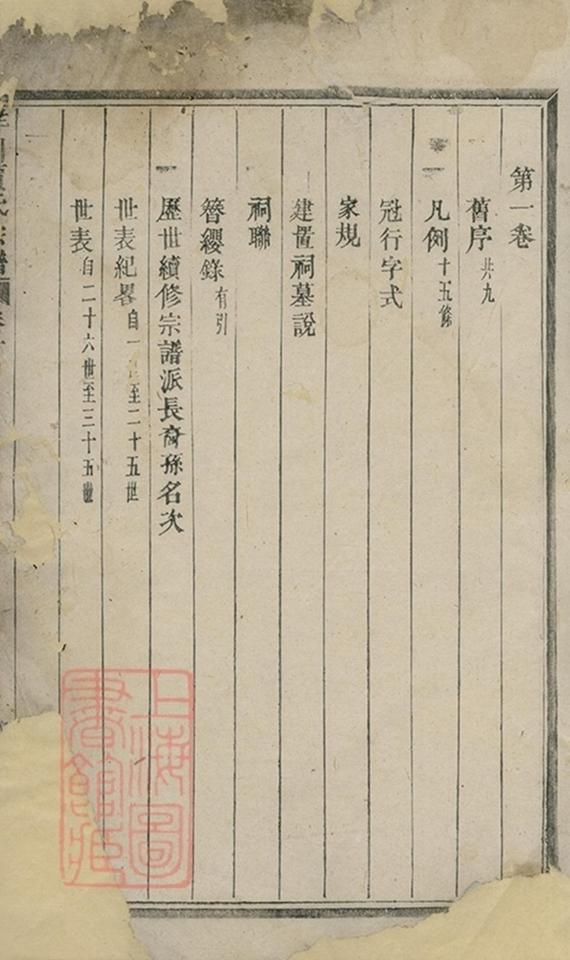 第一卷
舊序共九
凡例十五條
冠行字式
家規
建置祠墓說
祠聯
簪纓錄有引
歷世續修宗譜派長裔孫名次
世表紀畧自一 至二十五世
世表自二十六世至三十五世
氏宗譜
上海圖書館藏